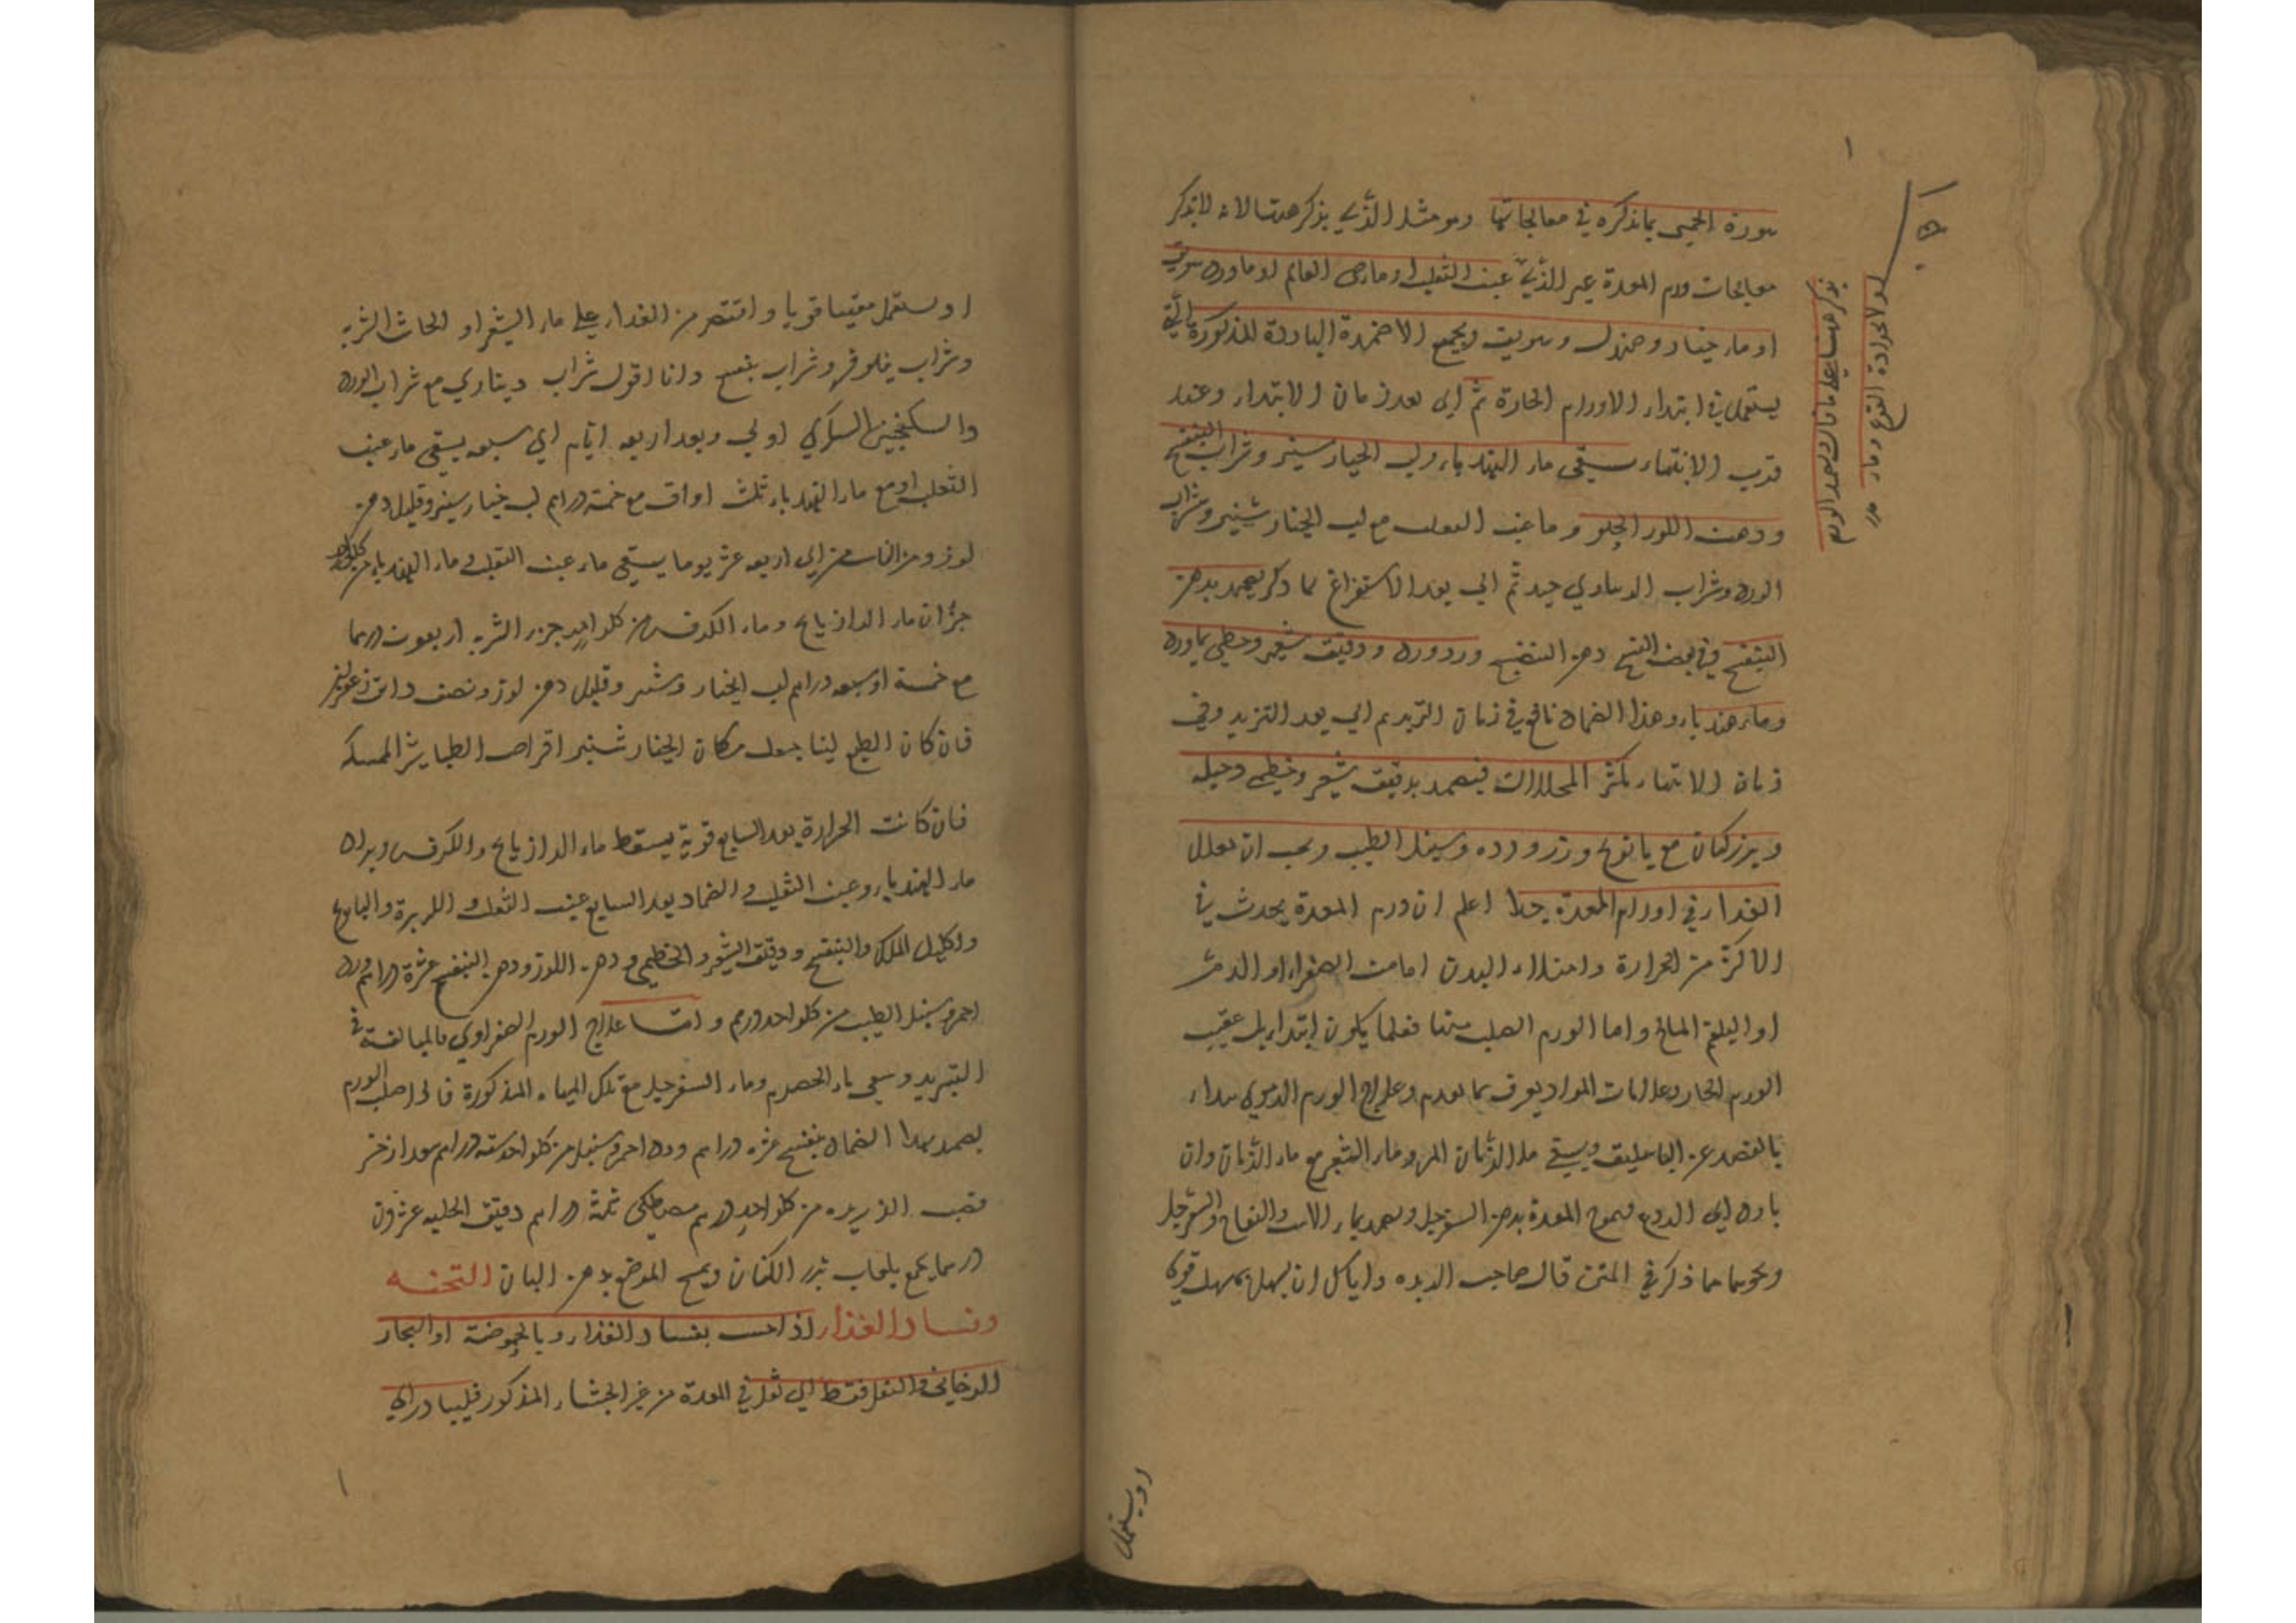 سورة الحمى بما نذكره في معالجاتها وهو مثل الذي يذكر هنا لانه لا يذكر
معالجات ورم المعدة غير الذي عنب الثعلب او ماء حي العالم او ماورد سويق
او ماء خيار وصندل وسويق وبجميع الاضمدة الباردة المذكورة التي
يستعمل في ابتداء الاورام الحارة ثم اي بعد زمان الابتداء وعند
قرب الانتهاء يسقى ماء الهندباء ولب الخيار شنبر وشراب البنفسج
ودهن اللوز الحلو وما عنب الثعلب مع لب الخيار شنبر وشراب
الورد وشراب الديناري جيد ثم اي بعد الاستفراغ بما ذكر يضمد بدهن
البنفسج وفي بعض النسخ دهن البنفسج وردورد ودقيق شعير وخطمي بماورد
وماء هندباء وهذا الضماد نافع في زمان التزيد ثم اي بعد التزيد وفي
زمان الانتهاء يكثر المحللات فيضمد بدقيق شعير وخطمي وحلبه
وبزر كتان مع بابونج وزر ورده وسنبل الطيب ويجب ان يقلل
الغذاء في اورام المعدة جدا اعلم ان ورم المعدة يحدث في
الاكثر من الحرارة وامتلاء البدن اما من الصفراء او الدم
او البلغم المالح واما الورم الصلب منها فقلما يكون ابتداء بل عقيب
الورم الحار وعلامات المواد يعرف بما تقدم وعلاج الورم الدموي يبداء
بالفصد عن الباسليق ويسقى ماء الرمان المز وماء الشعير مع ماء الرمان وان
بادر الى الورم فيموخ المعدة بدهن السفرجل ويضمد بماء الاس والتفاح والسفرجل
ونحوهما مما ذكر في المتن قال صاحب الزبده واياك ان يسهل بمسهل قوي
لولا لحرارة القرع وماء
يذكر هنا على ما قال بعد الورم
او يستعمل
او يستعمل مقيئا قويا واقتصر من الغذاء على ماء الشعير او الحاث الشربه
وشراب نيلوفر وشراب بنفسج وانا اقول شراب ديناري مع شراب الورد
والسكنجبين السكري اولى وبعد اربعه ايام اي سبعه يسقى ماء عنب
الثعلب او مع ماء الهندباء ثلث اواق مع خمسة دراهم لب خيار شنبر وقليل دهن
لوز ومن الثامن الى اربعه عشر يوما يسقى ماء عنب الثعلب وماء الهندباء من كل واحد
جزءان ماء الرازيانج وماء الكرفس من كل واحد جزء الشربه اربعون درهما
مع خمسة او سبعه دراهم لب الخيار وشنبر وقليل دهن لوز ونصف دانق زعفران
فان كان الطبع لينا يبدل مكان الخيار شنبر اقراص الطباشير الممسكه
فان كانت الحرارة بعد السابع قوية يسقط ماء الرازيانج والكرفس ويزاد
ماء الهندباء وعنب الثعلب والضماد بعد السابع عنب الثعلب والكزبرة والبابونج
واكليل الملك والبنفسج ودقيق الشعير والخطمي ودهن اللوز ودهن البنفسج عشرة دراهم ورد
احمر وسنبل الطيب من كل واحد درهم واما علاج الورم الصفراوي بالمبالغة في
التبريد ويسقى ماء الحصرم وماء السفرجل مع تلك المياه المذكورة فان صلب الورم
يضمد بهذا الضماد بنفسج عشره دراهم ورد احمر وسنبل من كل واحد سته دراهم سعد اذخر
قصب الذريره من كل واحد درهم مصطكى ثلثة دراهم دقيق الحلبه عشرون
درهما يجمع بلعاب بزر الكتان ويمسح الموضع بدهن البان التخمه
وفساد الغذاء اذا احس بفساد الغذاء وبالحموضة او البخار
الدخاني والثقل فقط اي ثقل في المعدة من غير الجشاء المذكور فليبادر الى